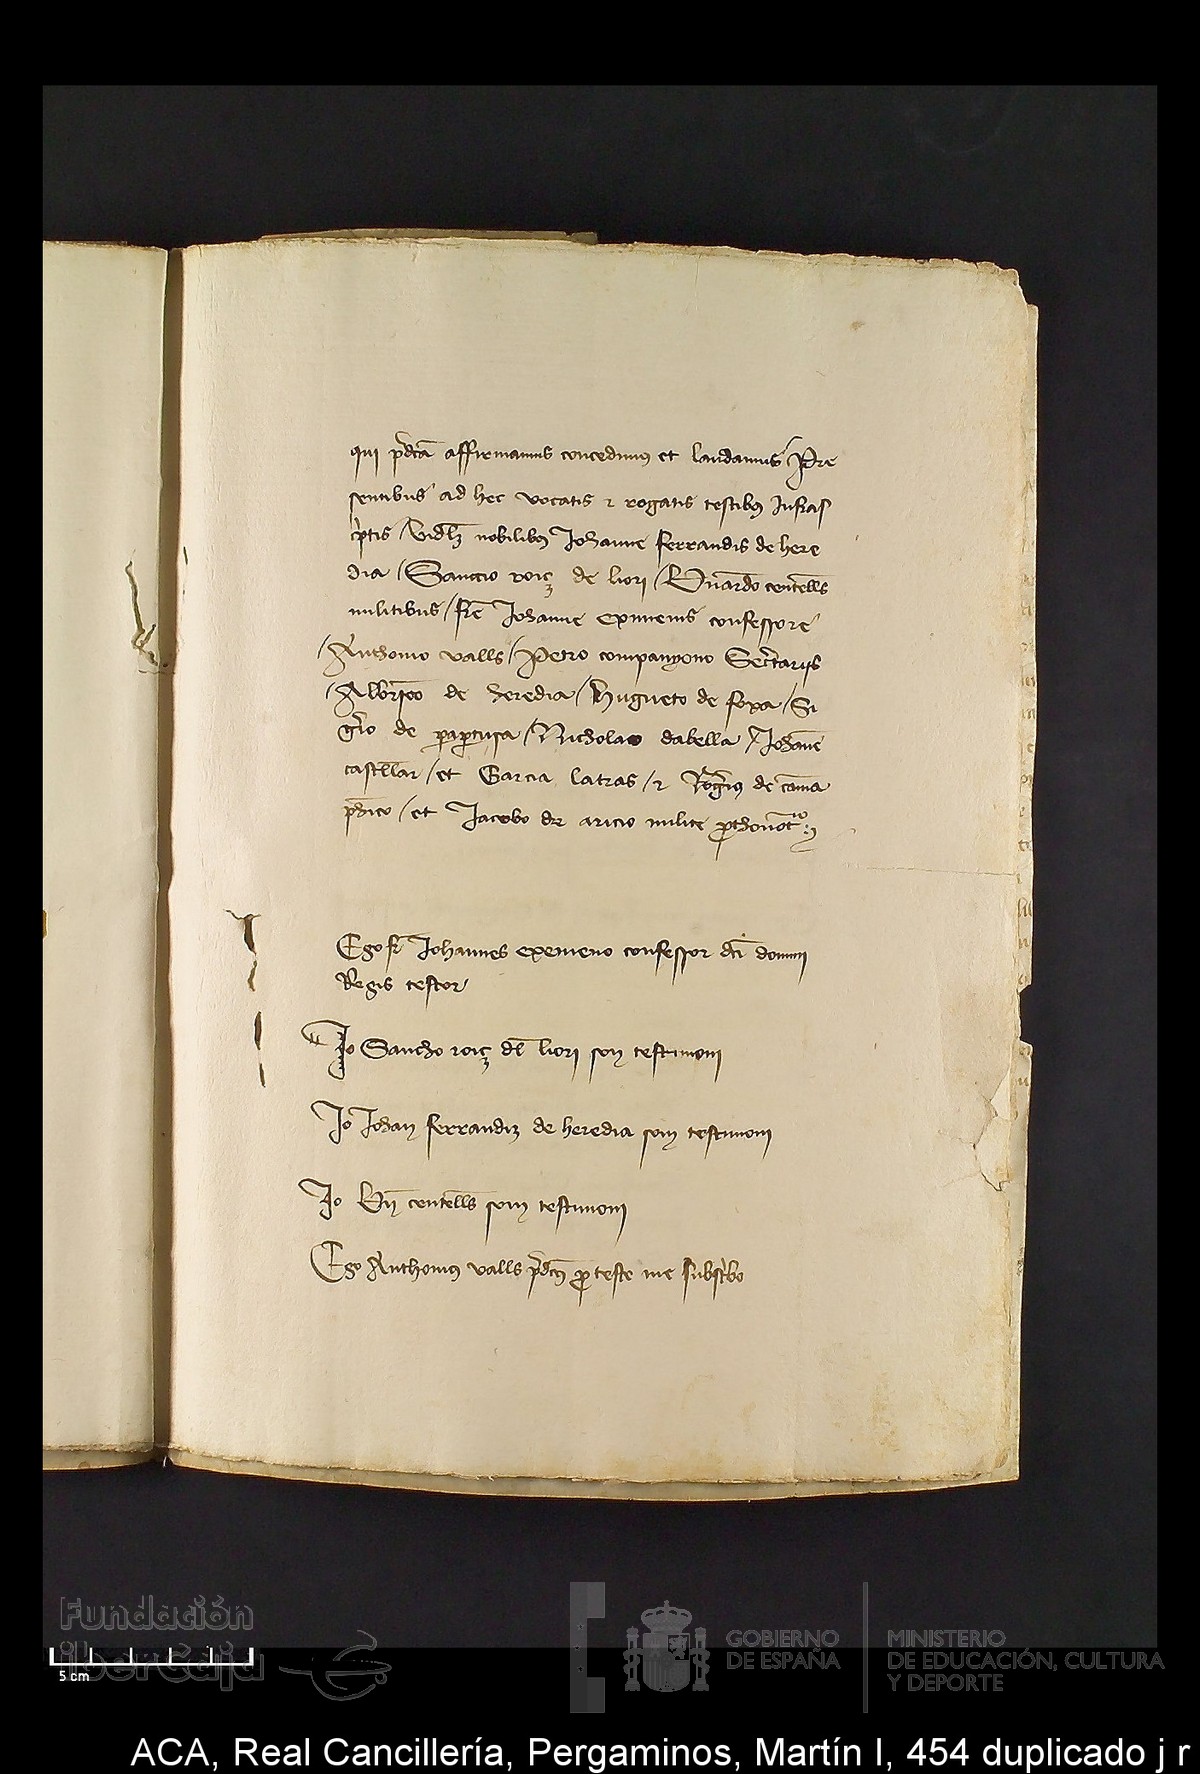 qui p̄dcā affirmamus concedimꝰ et laudamus / Pre
sentibus ad hec vocatis ⁊ rogatis testibꝫ Infras
cptis / vidlꝫ nobilibꝫ Johanne ferrandis de here
dia / Sanccio roiç de liori / Bn̄ardo centells
militibus / frē Johanne exmenis confessore
/ Anthonio valls / Petro companyono Secretarijs
/ Albrico de heredia / Hugueto de foxa / Si
de / Nicholao dabella / Johāne
castellar / et Garcia latras / ⁊ de cama
/ et Jacobo de aricio milite ꝓthonotio
Ego fr̄ Johannes exemeno confessor dci domini
Regis testor
Jo Sancho roiç dl liori son testimoni
Jo Johan ferrandiz de heredia som testimoni
Jo Bn̄ centells som testimoni
Ego Anthonius valls p̄dcꝰ ꝓ teste me subscbo
Fundación
iberCaja
5 cm
GOBIERNO
DE ESPAÑA
MINISTERIO
DE EDUCACIÓN, CULTURA
Y DEPORTE
ACA, Real Cancillería, Pergaminos, Martín I, 454 duplicado j r